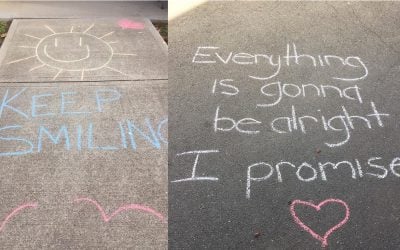 KEEP
SMILING
Everything
is gonna
be alright
I promise